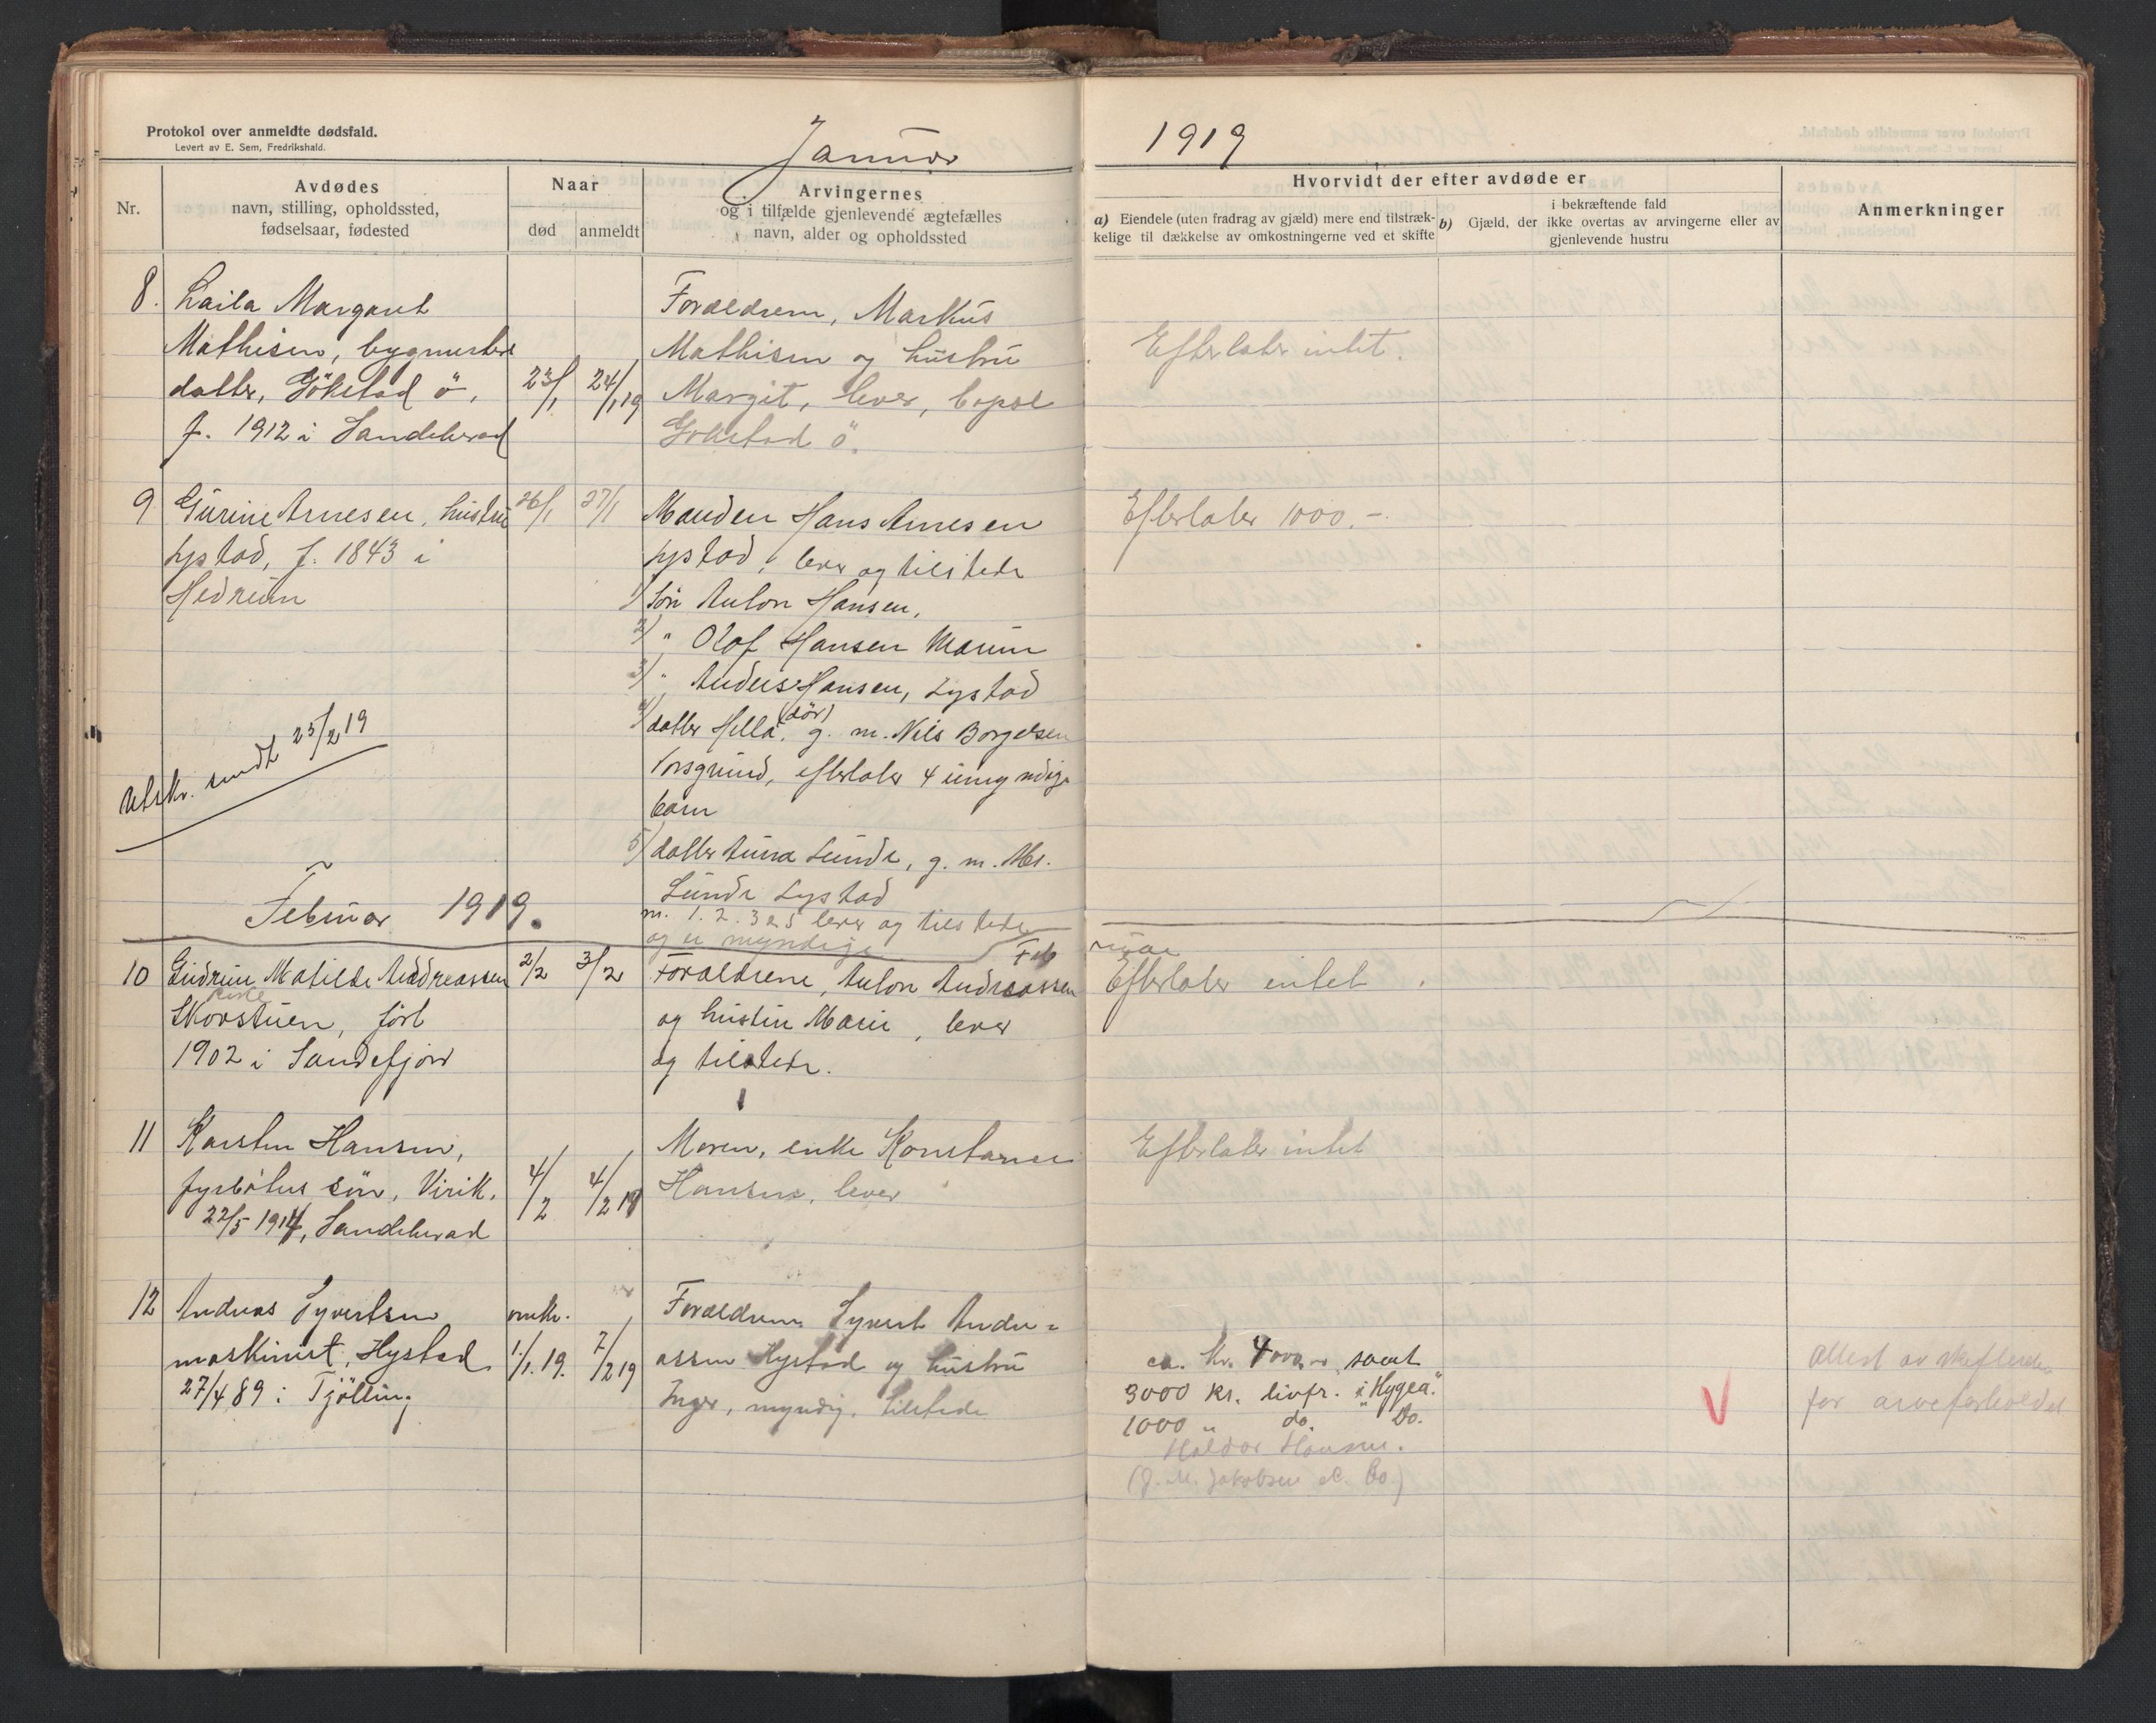 Protokol over anmeldte dødsfald.
Levert av E. Sem, Fredrikshald.
Januar 1919
Nr.
Avdødes
navn, stilling, opholdssted,
fødselsaar, fødested
Naar
død
anmeldt
Arvingernes
og i tilfælde gjenlevende ægtefælles
navn, alder og opholdssted
Hvorvidt der efter avdøde er
a) Eiendele (uten fradrag av gjæld) mere end tilstræk-
kelige til dækkelse av omkostningerne ved et skifte
i bekræftende fald
b) Gjæld, der ikke overtas av arvingerne eller av
gjenlevende hustru
Anmerkninger
8. Laila Margaret
Mathisen, bygmesters
datter, Gökstad ö,
f. 1912 i Sandeherad
23/1
24/1 19
Forældrene, Markus
Mathisen og hustru
Margit, lever, bopæl
Gökstad ö.
Efterlater intet.
9 Gurine Arnesen, hustru
Lystad, f. 1843 i
Hedrum
26/1
27/1
Manden Hans Arnesen
Lystad, lever og tilstede
1) Sön Anton Hansen,
2) " Olaf Hansen Marum
3) " Anders Hansen, Lystad
4) datter Hella, (död) g. m. Nils Borgersen
Porsgrund, efterlater 4 umyndige
barn
5) datter Anna Lunde, g. m. Mr.
Lunde Lystad
nr. 1. 2. 3 & 5 lever og tilstede
og er myndige
Efterlater 1000.-
Utskr. sendt 25/2 19
Februar 1919.
Feb ruar
10 Gudrun Matilde Andreassen
pike
Skorstuen, född
1902 i Sandefjord
2/2
3/2
Forældrene, Anton Andreassen
og hustru Marie, lever
og tilstede.
Efterlater intet.
11 Karsten Hansen,
fyrböters sön, Virik,
22/5 1914, Sandeherad
4/2
4/2 19
Moren, enke Konstanse
Hansen, lever
Efterlater intet
12 Andreas Syvertsen
maskinist, Hystad
27/4 89 i Tjölling
omkr.
1/1. 19.
7/2 19
Forældrene Syvert Andre=
assen Hystad og hustru
Inger, myndig, tilstede
ca. Kr. 4000,-, samt
3000 kr. livfr. i "Hygea".
1000 " do. Do.
Haldor Hansen.
(J. M. Jakobsen & Co.)
V
Attest av skifteretten
for arveforholdet